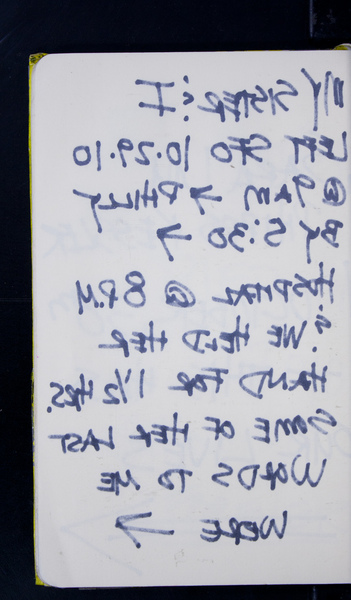 MY SISTER & I
LEFT SFO 10.29.10
@ 9AM → PHILLY
BY 5:30 →
HSPITAL @ 8PM
∴ WE HELD HER
HAND FOR 1 1/2 HRS.
SOME OF HER LAST
WORDS TO ME
WERE →